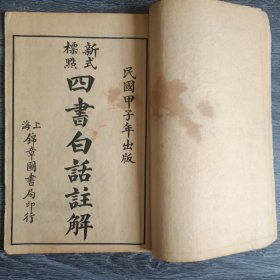 民國甲子年出版
新式標點
四書白話註解
上海錦章圖書局印行